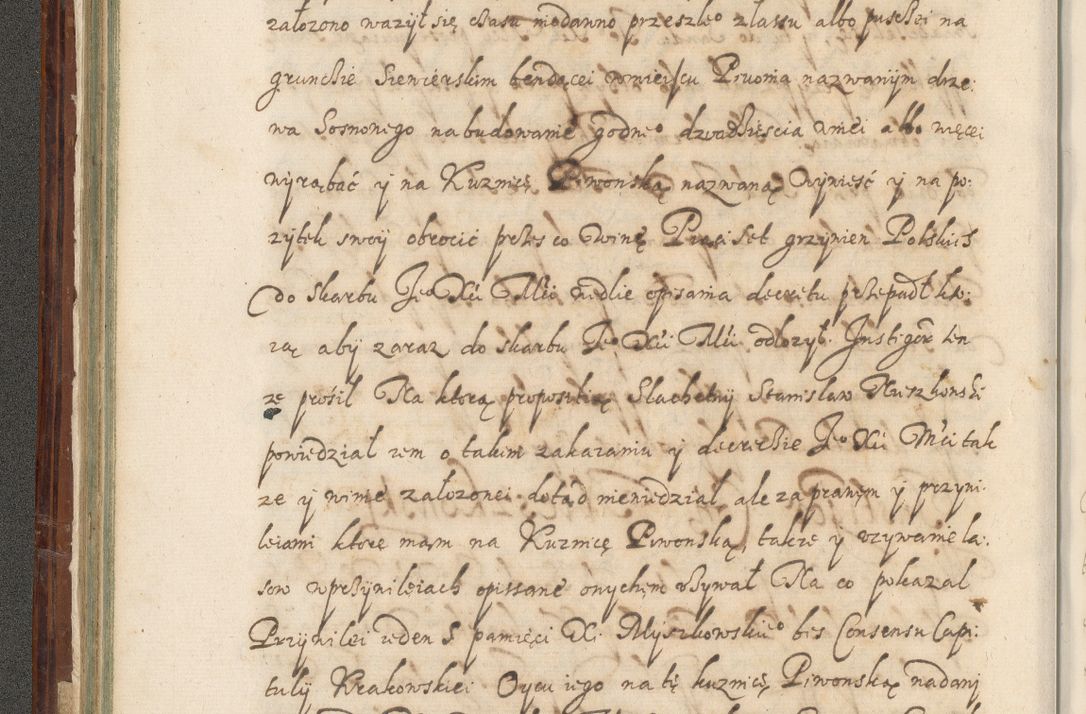 załozono wazył się czasu niedawno przeszłeo z lassu albo pusczei na
grunczie Siewierskim bendącei w mieiscu Piwonia nazwanijm drze:
wa Sosnowego na budowanie godneo dzwadziescia y mei albo więcei
wyrąbać y na Kuznicę Piwonską nazwaną Wywiesć y na po:
zytek swoij obrocić przes co Winę Pięci Set grzywien Polskich
do Skarbu Jeo Xci Mści wedlie opisania decretu przepadł kto:
rą abij zaraz do skarbu Jeo Xci Mci odłozył. Instigator ten
ze prosił Na ktorą propositią Slachetny Stanislaw Kuszkonski
powiedział zem o takim zakazaniu y decreczie Jeo Xci Mści tak
ze y winie załozonei dotąd niewiedział ale za prawem y przywi:
leiami ktore mąm na Kuznicę Piwonską, także y vzywanie la:
sow w przywileiach opissane onychem vzywał Na co pokazal
Przywilei ieden S pamięci X. Myszkowskieo bes Consensu Capi:
tuly Krakowskiei Oycu iego na tę kuznicę Piwonską nadany